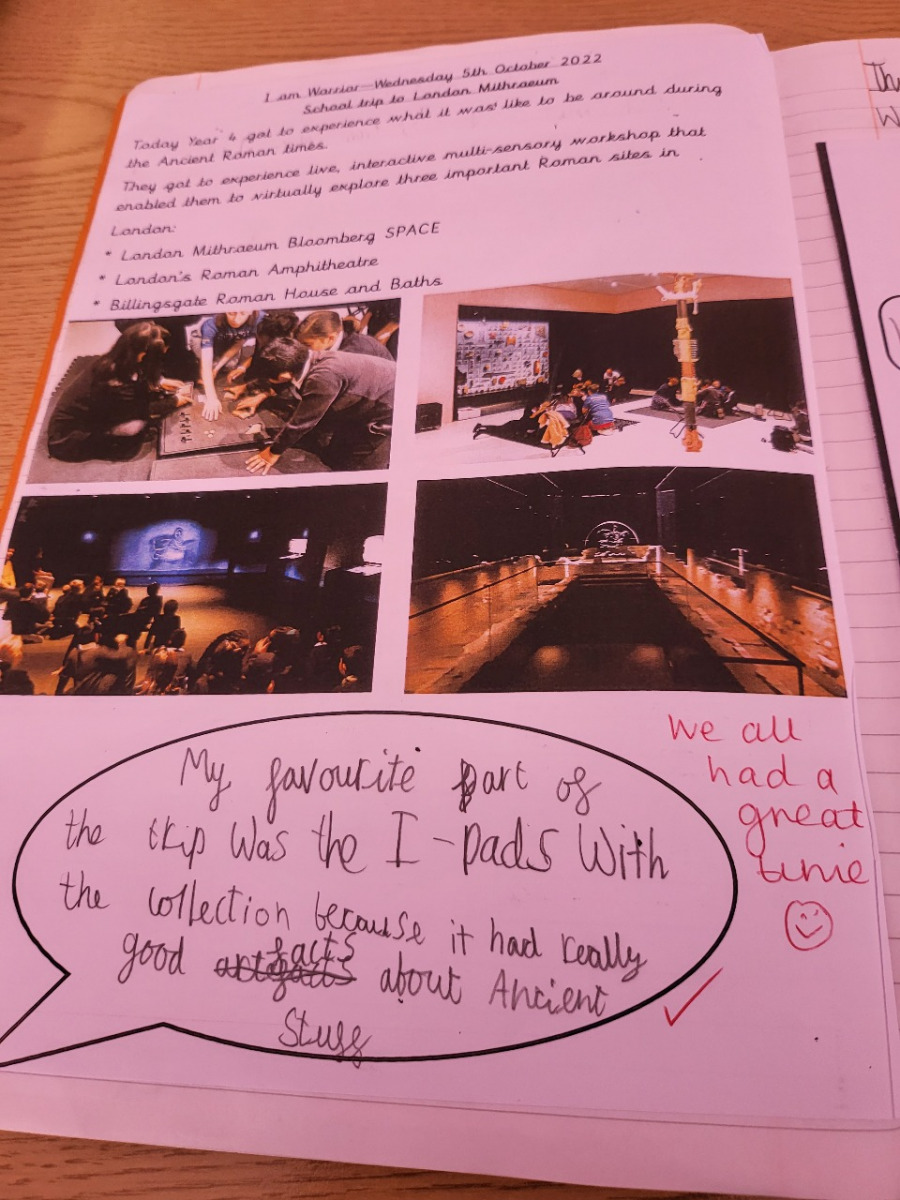 I am Warrior—Wednesday 5th October 2022
School trip to London Mithraeum
Today Year 4 got to experience what it was like to be around during
the Ancient Roman times.
They got to experience live, interactive multi-sensory workshop that
enabled them to virtually explore three important Roman sites in
London:
* London Mithraeum Bloomberg SPACE
* London's Roman Amphitheatre
* Billingsgate Roman House and Baths
My favourite part of
the trip Was the I-pads With
the collection because it had really
facts
good artefacts about Ancient
Stuff
We all
had a
great
time